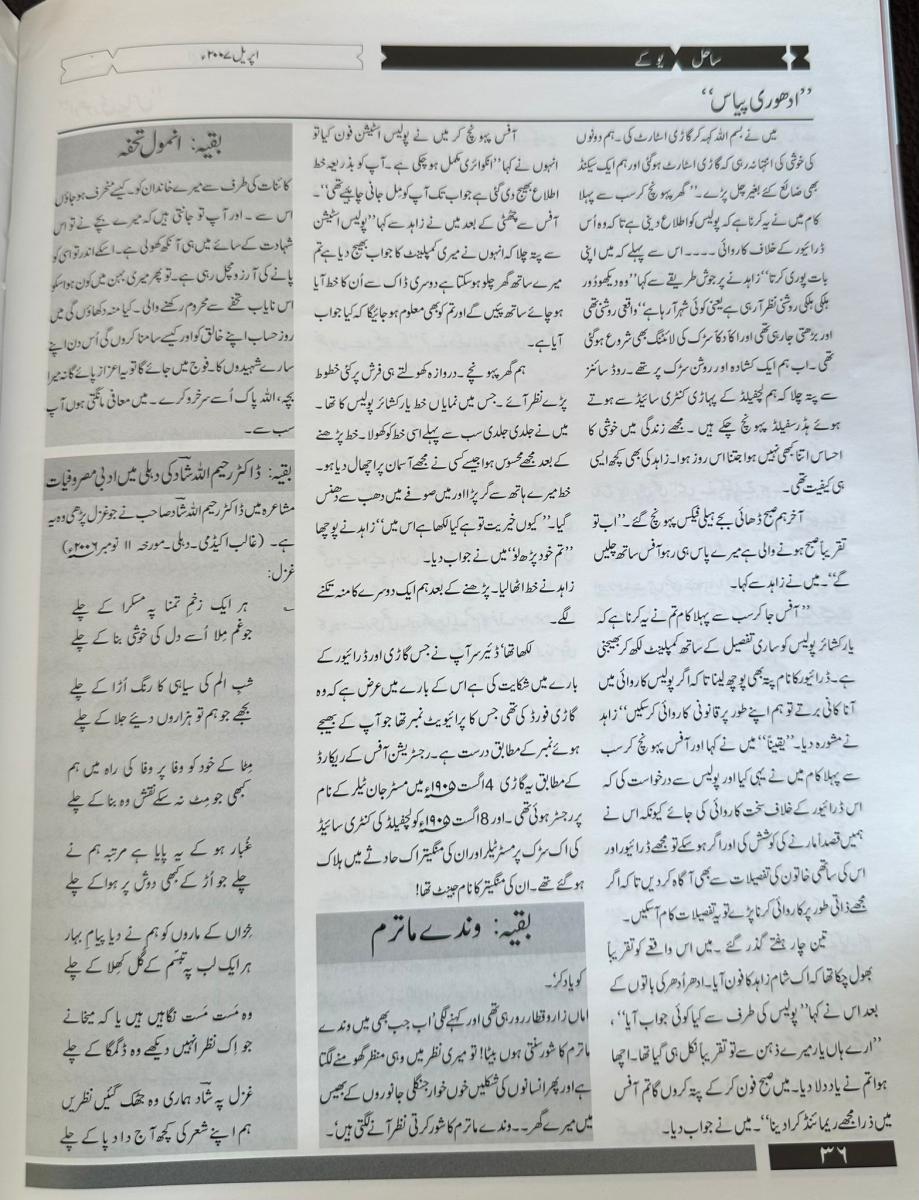 ساحل یو کے
اپریل ۲۰۰۷ء
”ادھوری پیاس“
میں نے بسم اللہ کہہ کر گاڑی اسٹارٹ کی۔ ہم دونوں
کی خوشی کی انتہا نہ رہی کہ گاڑی اسٹارٹ ہو گئی اور ہم ایک سیکنڈ
بھی ضائع کئے بغیر چل پڑے۔ ”گھر پہونچ کر سب سے پہلا
کام میں نے یہ کرنا ہے کہ پولیس کو اطلاع دینی ہے تاکہ وہ اُس
ڈرائیور کے خلاف کاروائی ۔۔۔۔ اس سے پہلے کہ میں اپنی
بات پوری کرتا“ زاہد نے پر جوش طریقے سے کہا ”وہ دیکھو دُور
ہلکی ہلکی روشنی نظر آ رہی ہے یعنی کوئی شہر آ رہا ہے“ واقعی روشنی تھی
اور بڑھتی جا رہی تھی اور اکا دکا سڑک کی لائٹنگ بھی شروع ہو گئی
تھی۔ اب ہم ایک کشادہ اور روشن سڑک پر تھے۔ روڈ سائنز
سے پتہ چلا کہ ہم لچفیلڈ کے پہاڑی کنٹری سائیڈ سے ہوتے
ہوئے ہڈرسفیلڈ پہونچ چکے ہیں ۔ مجھے زندگی میں خوشی کا
احساس اتنا کبھی نہیں ہوا جتنا اس روز ہوا۔ زاہد کی بھی کچھ ایسی
ہی کیفیت تھی۔
آخر ہم صبح ڈھائی بجے ہیلی فیکس پہونچ گئے۔ ”اب تو
تقریباً صبح ہونے والی ہے میرے پاس ہی رہو آفس ساتھ چلیں
گے“۔ میں نے زاہد سے کہا۔
”آفس جا کر سب سے پہلا کام تم نے یہ کرنا ہے کہ
یارکشائر پولیس کو ساری تفصیل کے ساتھ کمپلینٹ لکھ کر بھیجنی
ہے۔ ڈرائیور کا نام پتہ بھی پوچھ لینا تاکہ اگر پولیس کاروائی میں
آنا کانی برتے تو ہم اپنے طور پر قانونی کاروائی کر سکیں“ زاہد
نے مشورہ دیا۔ ”یقیناً“ میں نے کہا اور آفس پہونچ کر سب
سے پہلا کام میں نے یہی کیا اور پولیس سے درخواست کی کہ
اس ڈرائیور کے خلاف سخت کاروائی کی جائے کیونکہ اس نے
ہمیں قصداً مارنے کی کوشش کی اور اگر ہو سکے تو مجھے ڈرائیور اور
اس کی ساتھی خاتون کی تفصیلات سے بھی آگاہ کر دیں تاکہ اگر
مجھے ذاتی طور پر کاروائی کرنا پڑے تو یہ تفصیلات کام آ سکیں۔
تین چار ہفتے گذر گئے ۔ میں اس واقعے کو تقریباً
بھول چکا تھا کہ اک شام زاہد کا فون آیا۔ ادھر اُدھر کی باتوں کے
بعد اس نے کہا ”پولیس کی طرف سے کیا کوئی جواب آیا“ ،
”ارے ہاں یار میرے ذہن سے تو تقریباً نکل ہی گیا تھا۔ اچھا
ہوا تم نے یاد دلا دیا۔ میں صبح فون کر کے پتہ کروں گا تم آفس
میں ذرا مجھے ریمائنڈ کرا دینا“۔ میں نے جواب دیا۔
آفس پہونچ کر میں نے پولیس اسٹیشن فون کیا تو
انہوں نے کہا ”انکوائری مکمل ہو چکی ہے۔ آپ کو بذریعہ خط
اطلاع بھیج دی گئی ہے جواب تک آپ کو مل جانی چاہیئے تھی“۔
آفس سے چھٹی کے بعد میں نے زاہد سے کہا ”پولیس اسٹیشن
سے پتہ چلا کہ انہوں نے میری کمپلینٹ کا جواب بھیج دیا ہے تم
میرے ساتھ گھر چلو ہو سکتا ہے دوسری ڈاک سے اُن کا خط آیا
ہو چائے ساتھ پئیں گے اور تم کو بھی معلوم ہو جائیگا کہ کیا جواب
آیا ہے۔
ہم گھر پہونچے ۔ دروازہ کھولتے ہی فرش پر کئی خطوط
پڑے نظر آئے ۔ جس میں نمایاں خط یارکشائر پولیس کا تھا۔
میں نے جلدی جلدی سب سے پہلے اسی خط کو کھولا۔ خط پڑھنے
کے بعد مجھے محسوس ہوا جیسے کسی نے مجھے آسمان پر اچھال دیا ہو۔
خط میرے ہاتھ سے گر پڑا اور میں صوفے میں دھب سے دھنس
گیا۔ ”کیوں خیریت تو ہے کیا لکھا ہے اس میں“ زاہد نے پوچھا
”تم خود پڑھ لو“ میں نے جواب دیا۔
زاہد نے خط اٹھا لیا۔ پڑھنے کے بعد ہم ایک دوسرے کا منہ تکنے
لگے۔
لکھا تھا ’ڈئیر سر آپ نے جس گاڑی اور ڈرائیور کے
بارے میں شکایت کی ہے اس کے بارے میں عرض ہے کہ وہ
گاڑی فورڈ کی تھی جس کا پرائیویٹ نمبر تھا جو آپ کے بھیجے
ہوئے نمبر کے مطابق درست ہے۔ رجسٹریشن آفس کے ریکارڈ
کے مطابق یہ گاڑی 4 اگست ۱۹۰۵ء میں مسٹر جان ٹیلر کے نام
پر رجسٹر ہوئی تھی۔ اور 8 اگست ۱۹۰۵ء کو لچفیلڈ کی کنٹری سائیڈ
کی اک سڑک پر مسٹر ٹیلر اور ان کی منگیتر اک حادثے میں ہلاک
ہو گئے تھے۔ ان کی منگیتر کا نام جینٹ تھا!
بقیہ: وندے ماترم
کو یاد کر‘۔
اماں زار و قطار رو رہی تھی اور کہنے لگی ’اب جب بھی میں وندے
ماترم کا شور سنتی ہوں بیٹا! تو میری نظر میں وہی منظر گھومنے لگتا
ہے اور پھر انسانوں کی شکلیں خوں خوار جنگلی جانوروں کے بھیس
میں میرے گھر۔۔ وندے ماترم کا شور کرتی نظر آنے لگتی ہیں‘۔
بقیہ: انمول تحفہ
کائنات کی طرف سے میرے خاندان کو۔ کیسے منحرف ہو جاؤں
اس سے ۔ اور آپ تو جانتی ہیں کہ میرے بچے نے تو اس
شہادت کے سائے میں ہی آنکھ کھولی ہے۔ اسکے اندر تو اسی کو
پانے کی آرزو مچل رہی ہے۔ تو پھر میری بہن میں کون ہوا سکو
اس نایاب تحفے سے محروم رکھنے والی ۔ کیا منہ دکھاؤں گی میں
روز حساب اپنے خالق کو اور کیسے سامنا کروں گی اُس دن اپنے
سارے شہیدوں کا۔ فوج میں جائے گا تو یہ اعزاز پائے گا نہ میرا
بچہ، اللہ پاک اُسے سرخرو کرے ۔ میں معافی مانگتی ہوں آپ
سب سے۔
بقیہ: ڈاکٹر رحیم اللہ شاد کی دہلی میں ادبی مصروفیات
مشاعرہ میں ڈاکٹر رحیم اللہ شاد صاحب نے جو غزل پڑھی وہ یہ
ہے۔ (غالب اکیڈمی۔ دہلی۔ مورخہ ۱۱ نومبر ۲۰۰۶ء)
غزل:
ہر ایک زخمِ تمنا پہ مسکرا کے چلے
جو غم مِلا اُسے دل کی خوشی بنا کے چلے
شبِ الم کی سیاہی کا رنگ اُڑا کے چلے
بجھے جو ہم تو ہزاروں دیئے جلا کے چلے
مِٹا کے خود کو وفا پر وفا کی راہ میں ہم
کبھی جو مِٹ نہ سکے نقش وہ بنا کے چلے
غُبار ہو کے یہ پایا ہے مرتبہ ہم نے
چلے جو اُڑ کے کبھی دوش پر ہوا کے چلے
خزاں کے ماروں کو ہم نے دیا پیامِ بہار
ہر ایک لب پہ تبسم کے گل کھلا کے چلے
وہ مَست مَست نگاہیں ہیں یا کہ میخانے
جو اِک نظر انہیں دیکھے وہ ڈگمگا کے چلے
غزل پہ شاد ہماری وہ جھک گئیں نظریں
ہم اپنے شعر کی کچھ آج داد پا کے چلے
۳۶